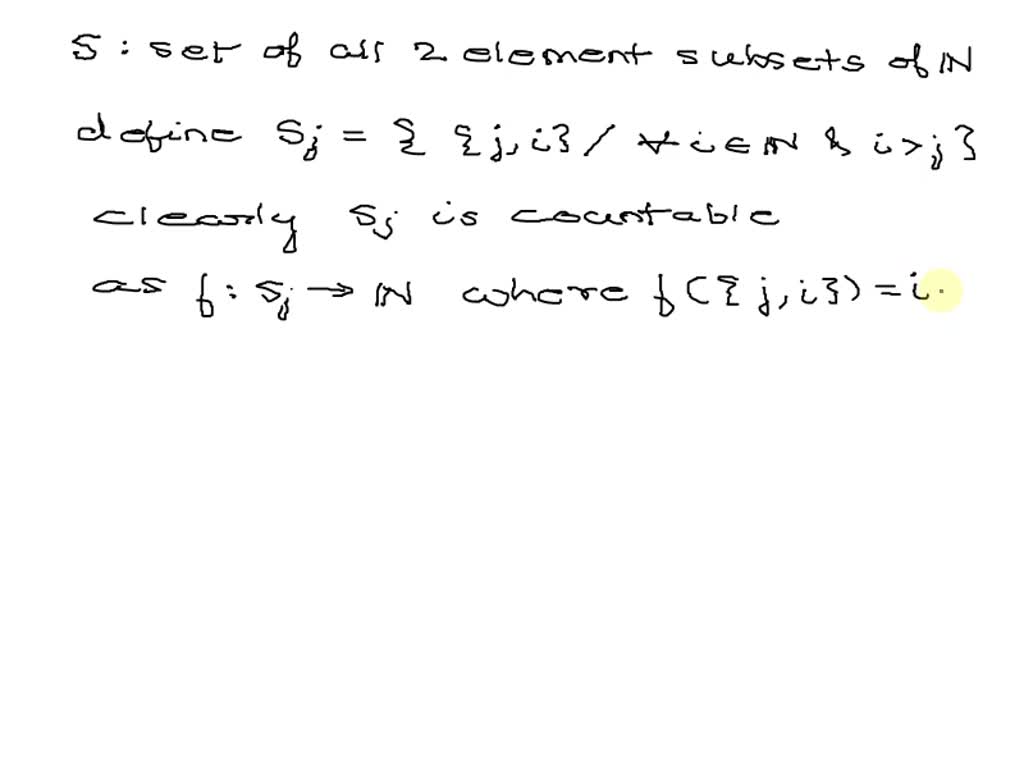 S : set of all 2 element subsets of ℕ
define Sj = { {j, i} / ∀ i ∈ ℕ & i > j }
clearly Sj is countable
as f : Sj → ℕ where f({j, i}) = i.